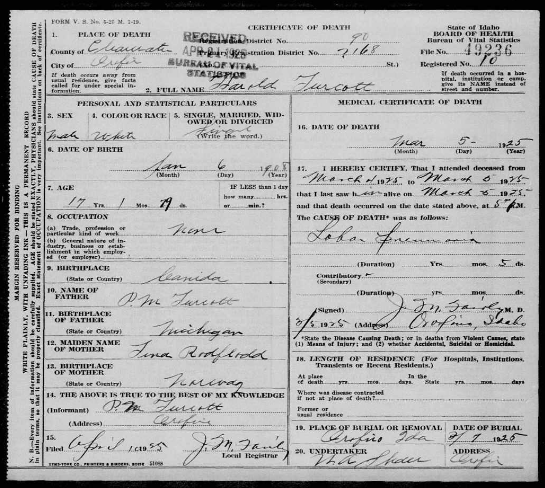 FORM V. S. No. 5-20 M. 1-19.
CERTIFICATE OF DEATH
State of Idaho
BOARD OF HEALTH
Bureau of Vital Statistics
1. PLACE OF DEATH
County of Clearwater
City of Orofino
RECEIVED
APR 21 1925
BUREAU OF VITAL
STATISTICS
District No. 90
Registration District No. 2168
St.)
File No. 49236
Registered No. 10
If death occurs away from usual residence, give facts called for under special information.
2. FULL NAME Harold Turcott
If death occurred in a hospital, institution or camp, give its NAME instead of street and number.
PERSONAL AND STATISTICAL PARTICULARS
3. SEX
Male
4. COLOR OR RACE
White
5. SINGLE, MARRIED, WIDOWED OR DIVORCED
(Write the word.)
6. DATE OF BIRTH
Jan 6 1908
(Month) (Day) (Year)
7. AGE
17 Yrs. 1 Mos. ds.
IF LESS than 1 day
how many hrs.
or min.?
8. OCCUPATION
(a) Trade, profession or particular kind of work
None
(b) General nature of industry, business or establishment in which employed (or employer)
9. BIRTHPLACE
(State or Country)
Canida
10. NAME OF FATHER
P. M. Turcott
11. BIRTHPLACE OF FATHER
(State or Country)
Michigan
12. MAIDEN NAME OF MOTHER
13. BIRTHPLACE OF MOTHER
(State or Country)
Norway
14. THE ABOVE IS TRUE TO THE BEST OF MY KNOWLEDGE
(Informant) P. M. Turcott
(Address) Orofino
15.
Filed April 1 1925
J. M. Fairly
Local Registrar
SYMS-YORK CO., PRINTERS & BINDERS, BOISE
MEDICAL CERTIFICATE OF DEATH
16. DATE OF DEATH
Mar 5 1925
(Month) (Day) (Year)
17. I HEREBY CERTIFY, That I attended deceased from
March 1925 to March 5 1925
that I last saw him alive on March 5 1925
and that death occurred on the date stated above, at 5 P.M.
The CAUSE OF DEATH* was as follows:
Lobar Pneumonia
(Duration) Yrs. mos. 5 ds.
Contributory
(Secondary)
(Duration) yrs. mos. ds.
(Signed) J. M. Fairly M. D.
1925 (Address) Orofino, Idaho
*State the Disease Causing Death; or in deaths from Violent Causes, state (1) Means of Injury; and (2) whether Accidental, Suicidal or Homicidal.
18. LENGTH OF RESIDENCE (For Hospitals, Institutions, Transients or Recent Residents.)
At place of death yrs. mos. days. In the State yrs. mos. days
Where was disease contracted if not at place of death?
Former or usual residence
19. PLACE OF BURIAL OR REMOVAL
Orofino Ida
DATE OF BURIAL
3/7 1925
20. UNDERTAKER
ADDRESS
Orofino
MARGIN RESERVED FOR BINDING
WRITE PLAINLY, WITH UNFADING INK—THIS IS A PERMANENT RECORD